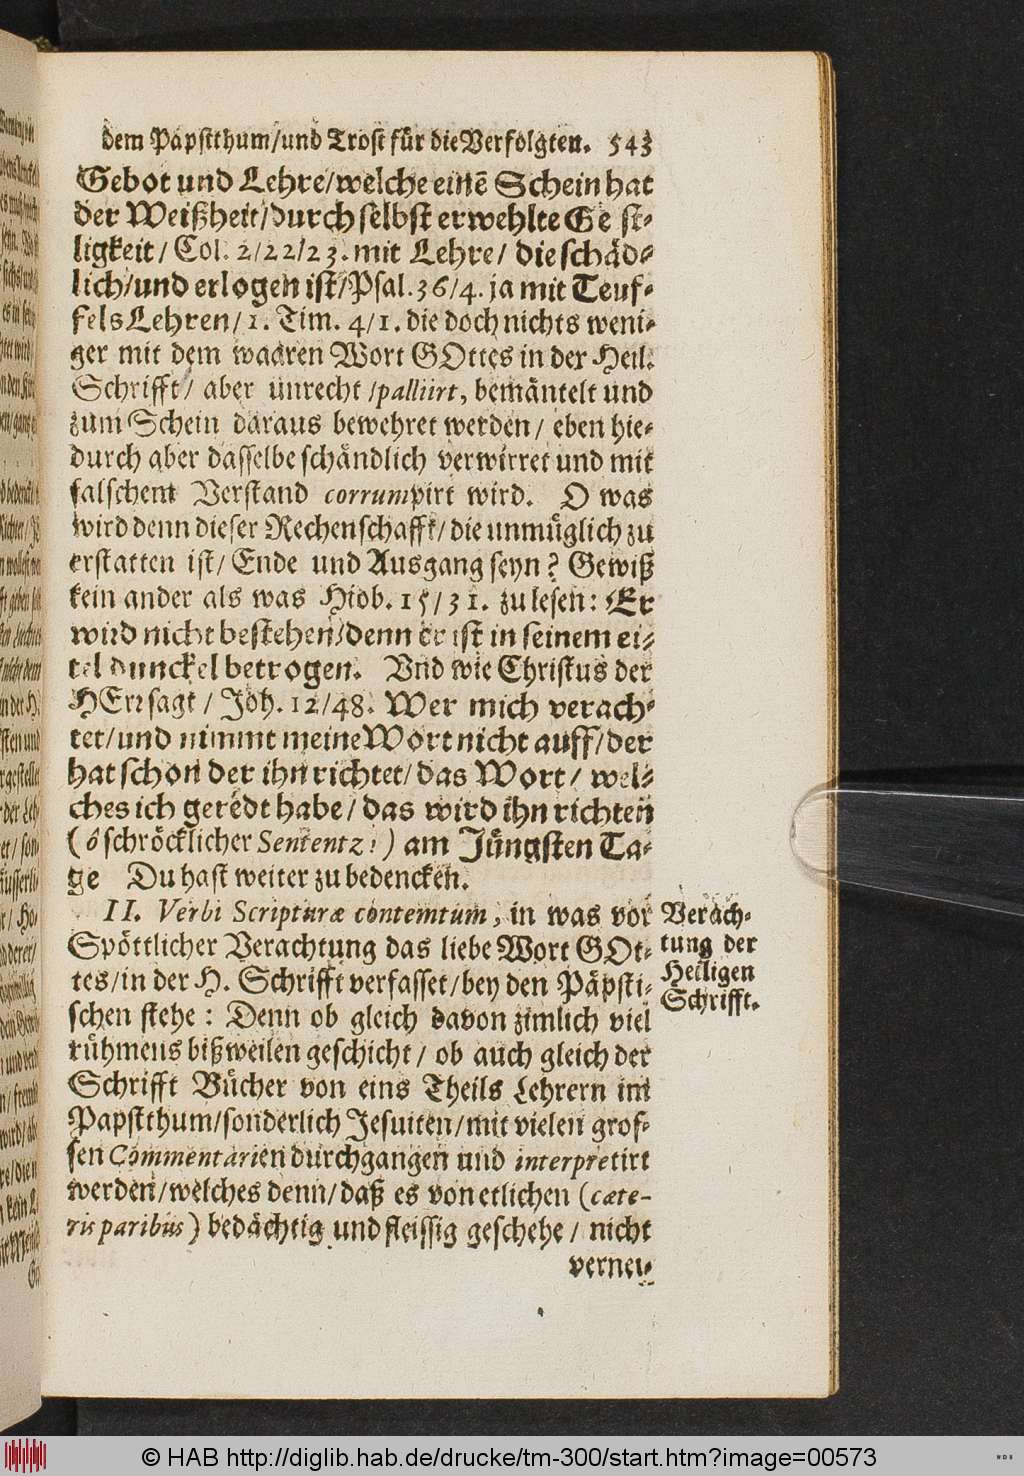 dem Päpstthum/und Trost für die Verfolgten. 543
Gebot und Lehre/welche einē Schein hat
der Weißheit/durch selbst erwehlte Ge st-
ligkeit/ Col. 2/22/23. mit Lehre/ die schäd-
lich/und erlogen ist/Psal. 36/4. ja mit Teuf-
fels Lehren/ 1. Tim. 4/1. die doch nichts weni-
ger mit dem waaren Wort GOttes in der Heil.
Schrifft/ aber unrecht /palliirt, bemäntelt und
zum Schein daraus bewehret werden/ eben hie-
durch aber dasselbe schändlich verwirret und mit
falschem Verstand corrumpirt wird. O was
wird denn dieser Rechenschafft/ die unmüglich zu
erstatten ist/ Ende und Ausgang seyn? Gewiß
kein ander als was Hiob. 15/31. zu lesen: Er
wird nicht bestehen/denn er ist in seinem ei-
tel dunckel betrogen. Vnd wie Christus der
HErr sagt / Joh. 12/48. Wer mich verach-
tet/und nimmt meine Wort nicht auff/der
hat schon der ihn richtet/das Wort/ wel-
ches ich geredt habe/ das wird ihn richten
(ô schröcklicher Sententz!) am Jüngsten Ta-
ge Du hast weiter zu bedencken.
II. Verbi Scripturæ contemtum, in was vor
Spöttlicher Verachtung das liebe Wort GOt-
tes/in der H. Schrifft verfasset/bey den Päpsti-
schen stehe: Denn ob gleich davon zimlich viel
rühmens bißweilen geschicht/ ob auch gleich der
Schrifft Bücher von eins Theils Lehrern im
Papstthum/sonderlich Jesuiten/mit vielen gros-
sen Commentarien durchgangen und interpretirt
werden/welches denn/daß es von etlichen (cæte-
ris paribus) bedächtig und fleissig geschehe/ nicht
vernei-
Verach-
tung der
Heiligen
Schrifft.
© HAB http://diglib.hab.de/drucke/tm-300/start.htm?image=00573